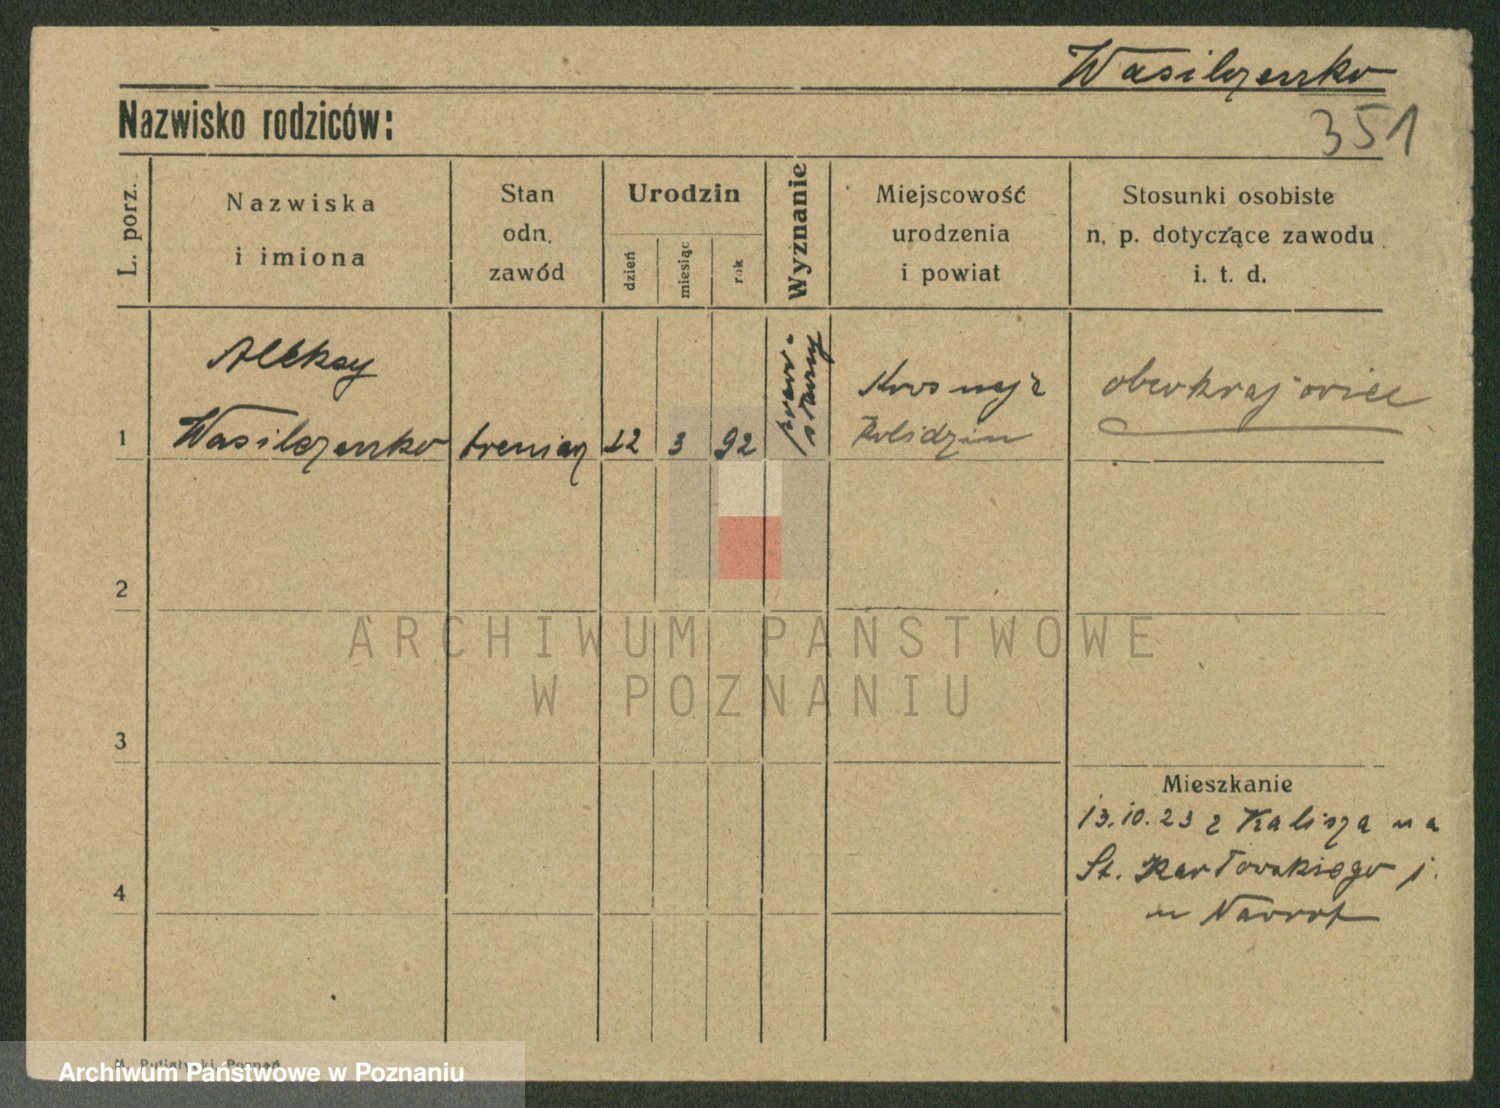 Wasilczenko
Nazwisko rodziców:
351
L. porz.
Nazwiska
i imiona
Stan
odn.
zawód
Urodzin
dzień
miesiąc
rok
Wyznanie
Miejscowość
urodzenia
i powiat
Stosunki osobiste
n. p. dotyczące zawodu
i. t. d.
Aleksy
1 Wasilczenko
12 3 92
prawo-
sławny
obcokrajowiec
2
ARCHIWUM PAŃSTWOWE
W POZNANIU
3
Mieszkanie
13.10.23 z Kalisza na
St. Karłowskiego
u Nawrot
4
Poznań
Archiwum Państwowe w Poznaniu